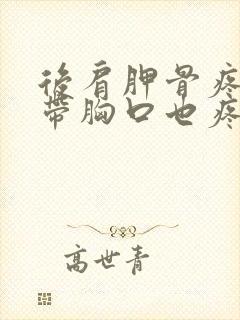 後肩胛骨疼
帶胸口也疼
高世青